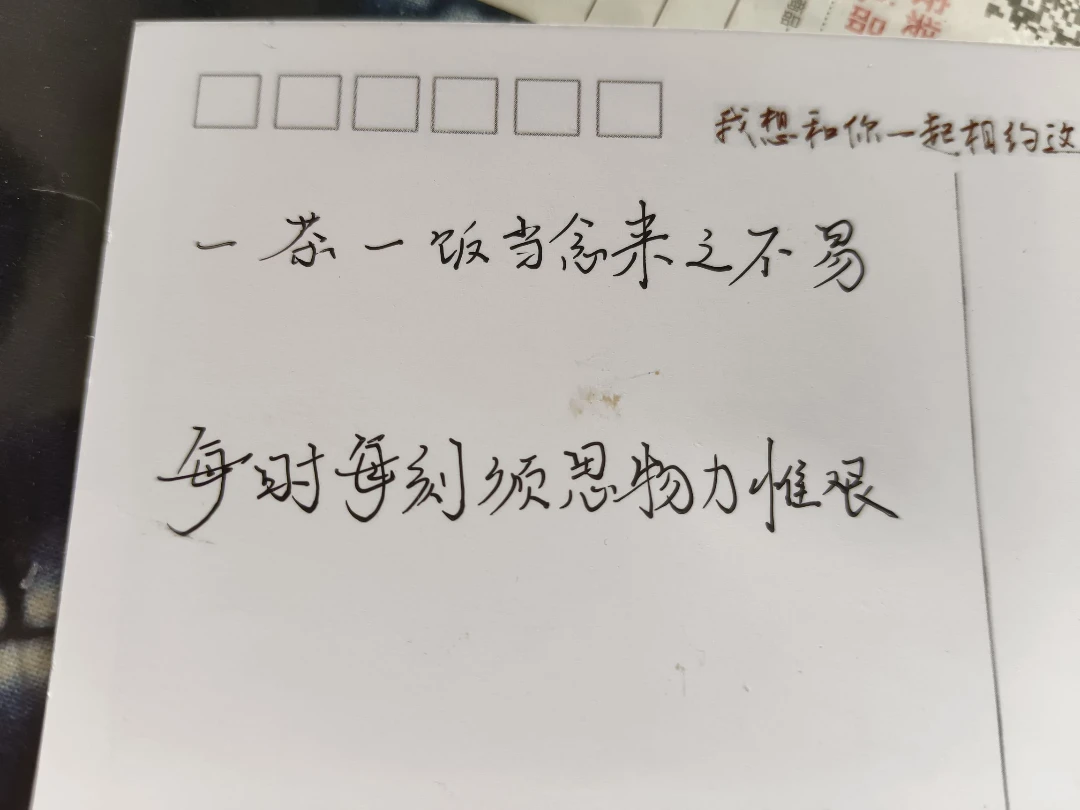 我想和你一起相约这
一茶一饭当念来之不易
每时每刻须思物力惟艰